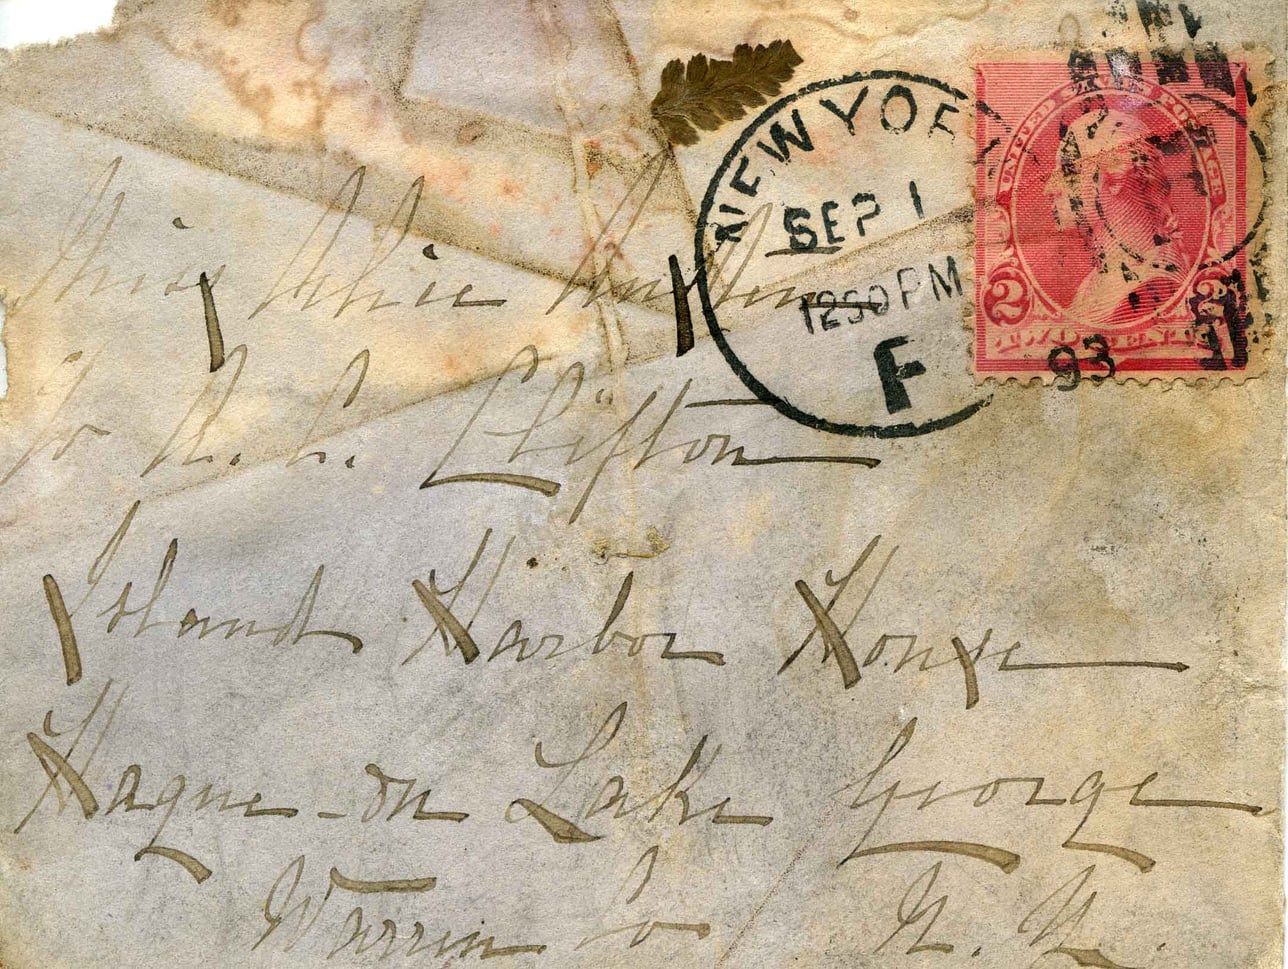 NEW YOR
SEP 1
1230 PM
F
93
UNITED STATES POSTAGE
2 2
TWO CENTS
Miss Alice
To H. L. Clifton
Island Harbor House
Hague - on Lake George
Warren Co N. Y.